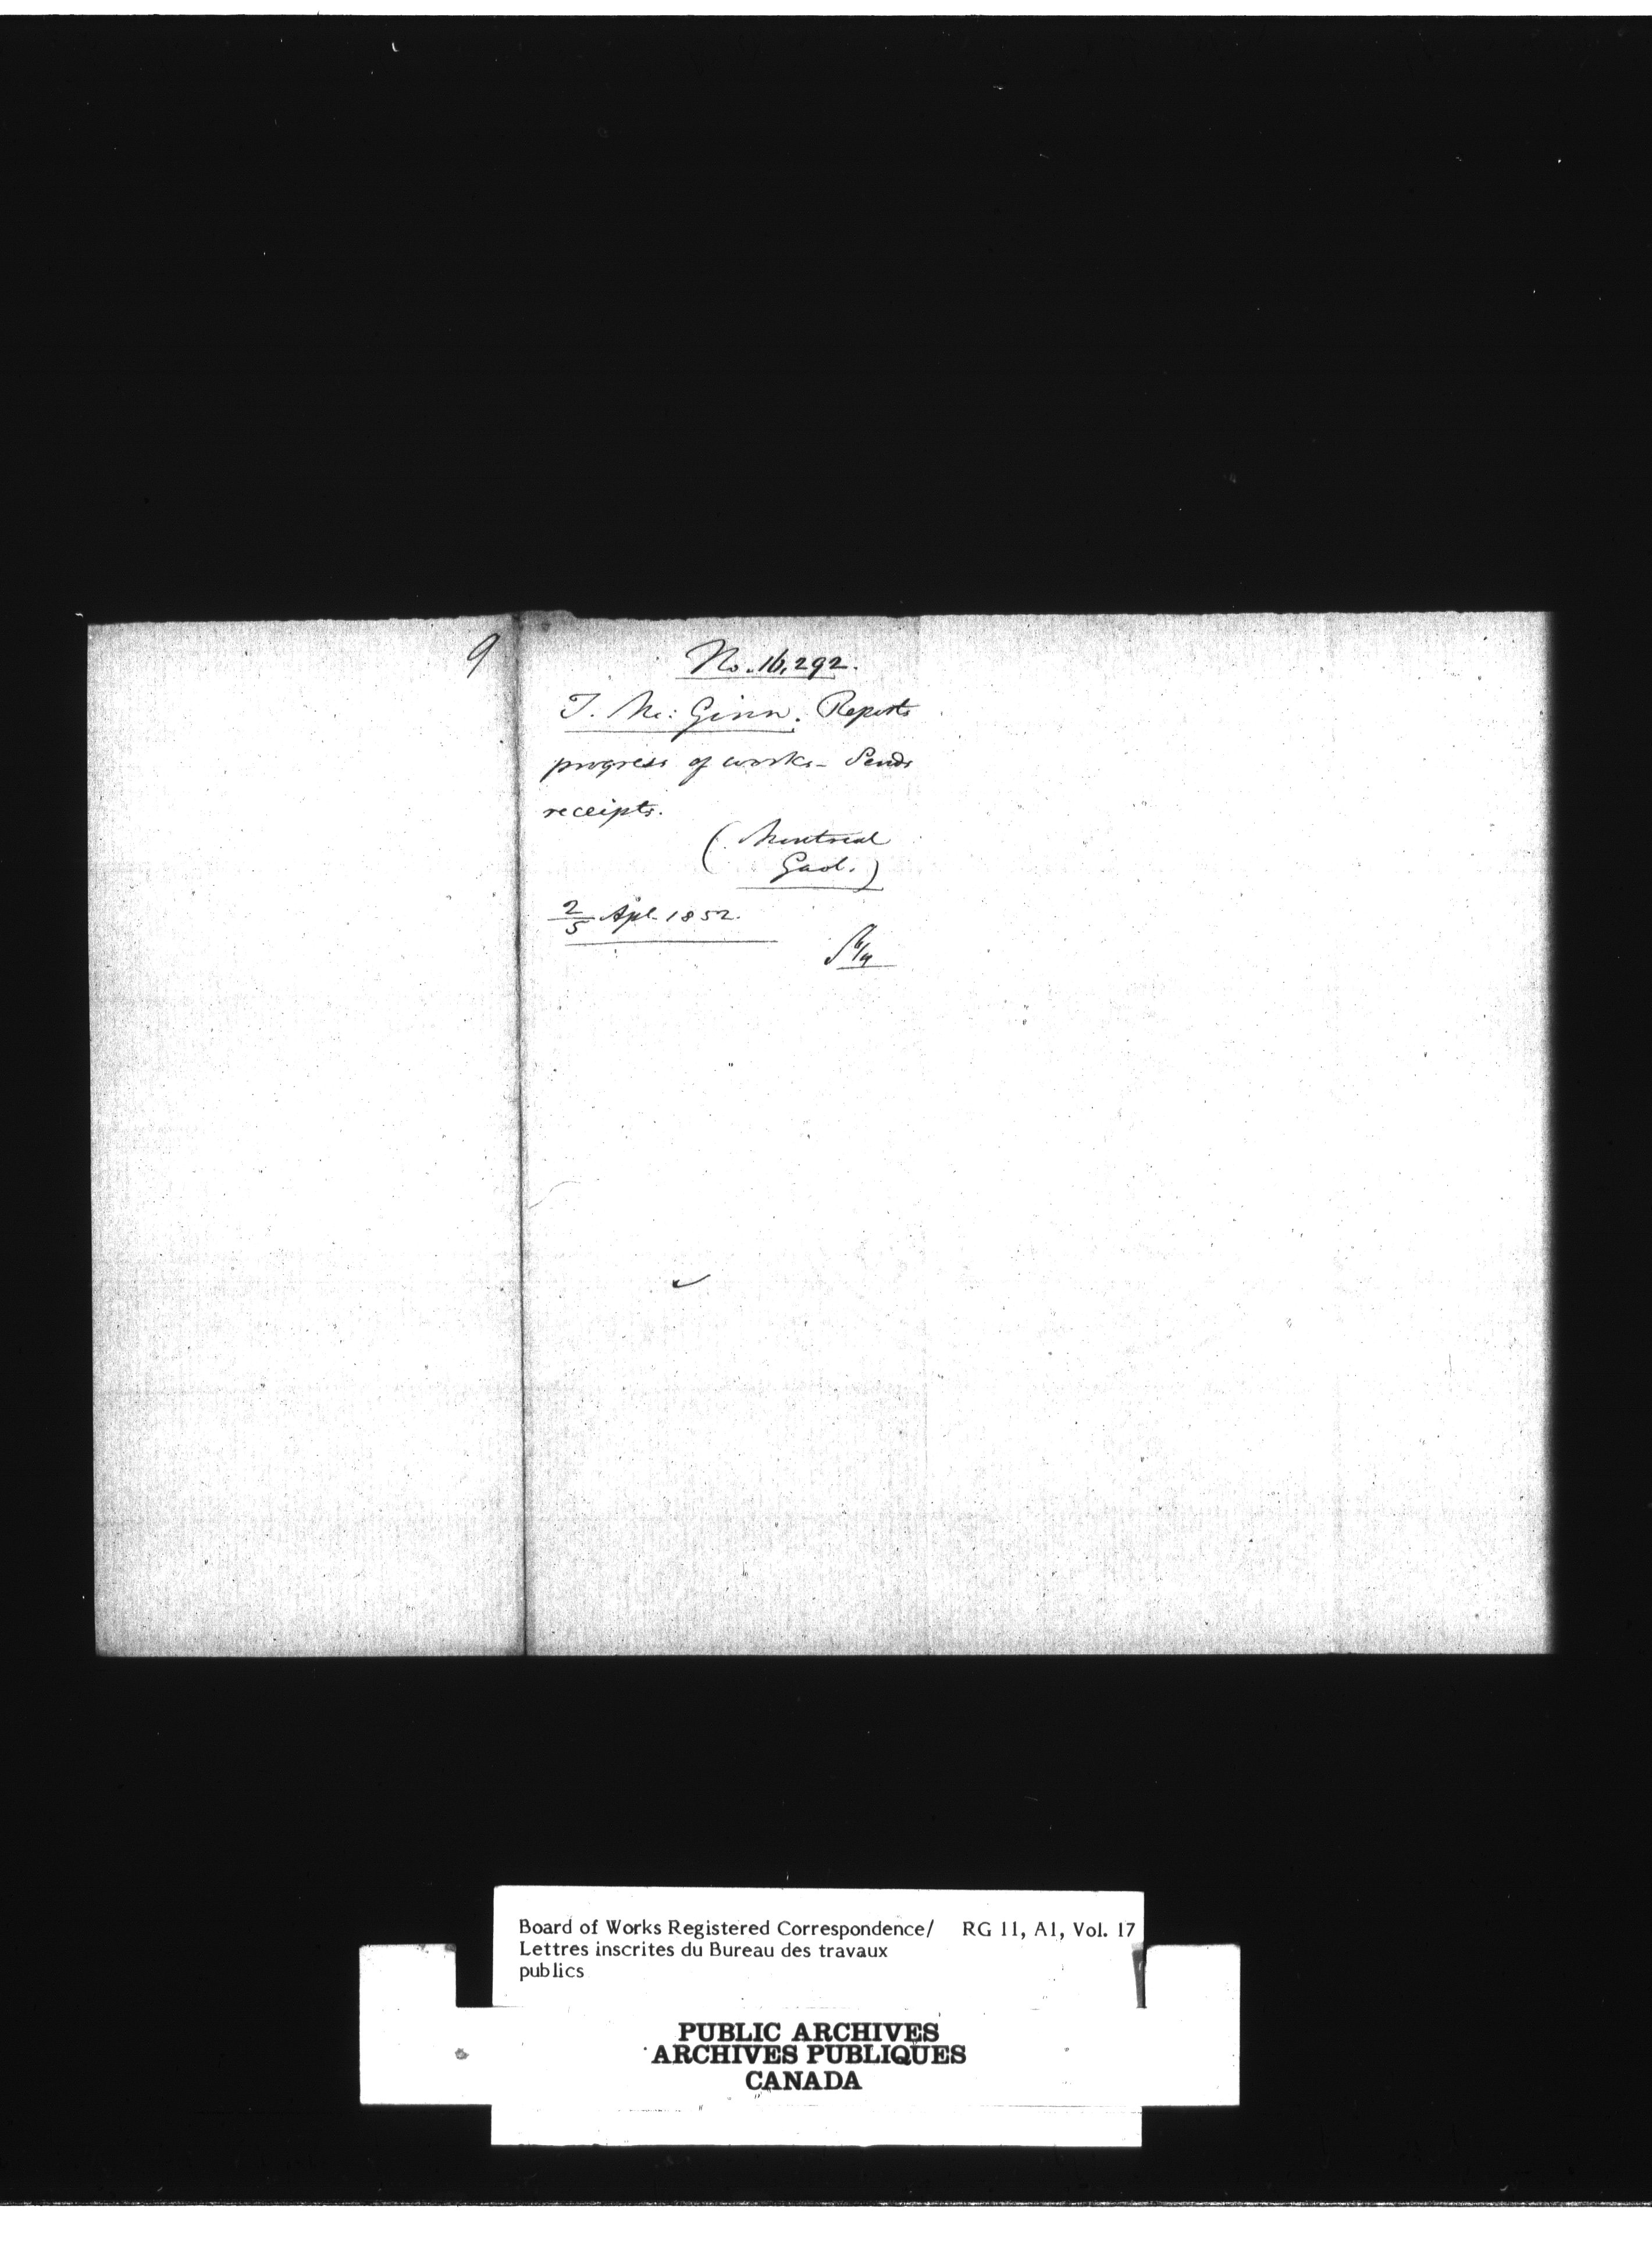 9
No. 16,292.
T. Mc: Ginn. Reports
progress of works - Sends
receipts.
(Montreal
Gaol.)
2/5 Apl. 1852.
Board of Works Registered Correspondence/ RG 11, A1, Vol. 17
Lettres inscrites du Bureau des travaux
publics
PUBLIC ARCHIVES
ARCHIVES PUBLIQUES
CANADA